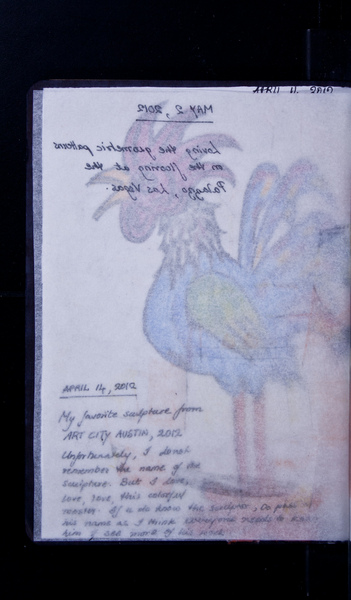 APRIL 11, 2012
MAY 2, 2012
Loving the geometric patterns
on the flooring at the
Palazzo, Las Vegas.
APRIL 14, 2012
My favorite sculpture from
ART CITY AUSTIN, 2012
Unfortunately, I do not
remember the name of the
sculpture. But I love,
love, love, this colorful
rooster. If you know the sculptor,
his name as I think everyone needs to
him & see more of his work.